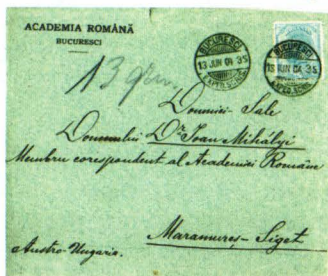 ACADEMIA ROMÂNĂ
BUCURESCI
BUCURESCI
13 JUN 04 3S
EXPED. SCRIS.
BUCURESCI
13 JUN 04 3S
EXPED. SCRIS.
13 grm
Domniei-Sale
Domnului Dr Ioan Mihályi
Membru corespondent al Academiei Române
Maramureș-Siget
Austro-Ungaria.